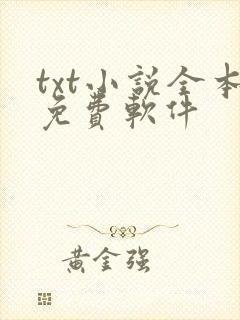 txt小説全本
免費軟件
黃金强